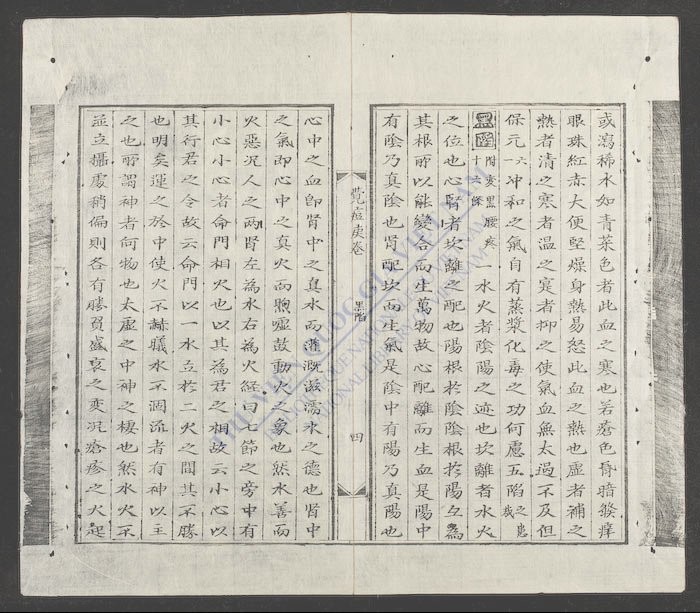 或瀉稀水如青菜色者此血之寒也若瘡色昏暗發痒
眼珠紅赤大便堅燥身熱易怒此血之熱也虛者補之
熱者清之寒者溫之實者抑之使氣血無太過不及但
保元六冲和之氣自有蒸漿化毒之功何慮五陷之患哉
黑陷 附变黒腰疼十六條 一水火者陰陽之迹也坎離者水火
之位也心腎者坎離之配也陽根於陰陰根於陽互為
其根所以能變合而生萬物故心配離而生血是陽中
有陰乃真陰也腎配坎而生氣是陰中有陽乃真陽也
痘疹卷 黑陷 四
心中之血即腎中之真水而灌溉滋濡水之德也腎中
之氣即心中之真火而煦噓鼓動火之象也然水善而
火惡况人之兩腎左為水右為火經曰七節之旁中有
小心小心者命門相火也以其為君之相故云小心以
其行君之令故云命門以一水立於二火之間其不勝
也明矣運之於中使火不赫曦水不涸流者有神以主
之也所謂神者何物也太虛之中神之棲也然水火不
並立攝處稍偏則各有勝負盛衰之变况瘡疹之火起
THƯ VIỆN QUỐC GIA VIỆT NAM
NATIONAL LIBRARY OF VIETNAM